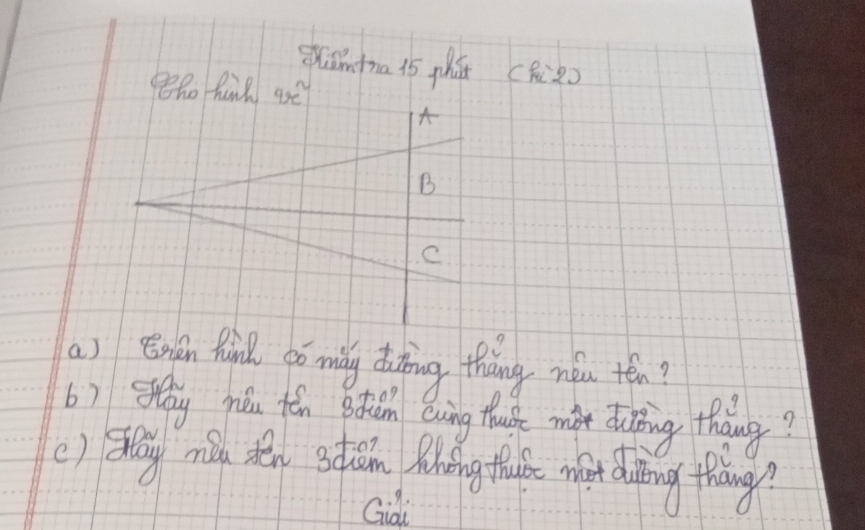 Kiểm tra 15 phút (kì 2)
Cho hình vẽ
A
B
C
a) Trên hình có mấy đường thẳng nêu tên?
b) Hãy nêu tên 3 điểm cùng thuộc một đường thẳng?
c) Hãy nêu tên 3 điểm không thuộc một đường thẳng?
Giải